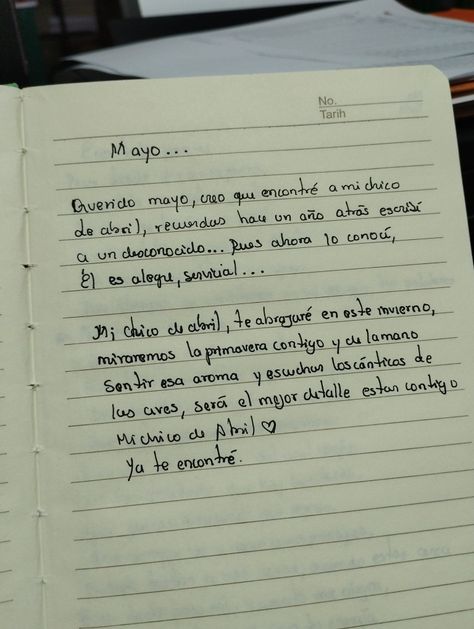 No.
Tarih
Mayo...
Querido mayo, creo que encontré a mi chico
de abril, recuerdas hace un año atrás escribí
a un desconocido... Pues ahora lo conocí,
Él es alegre, servicial...
Mi chico de abril, te abrazaré en este invierno,
miraremos la primavera contigo y de la mano
sentir esa aroma y escuchar los cánticos de
las aves, será el mejor detalle estar contigo
Mi chico de Abril ♡
Ya te encontré.